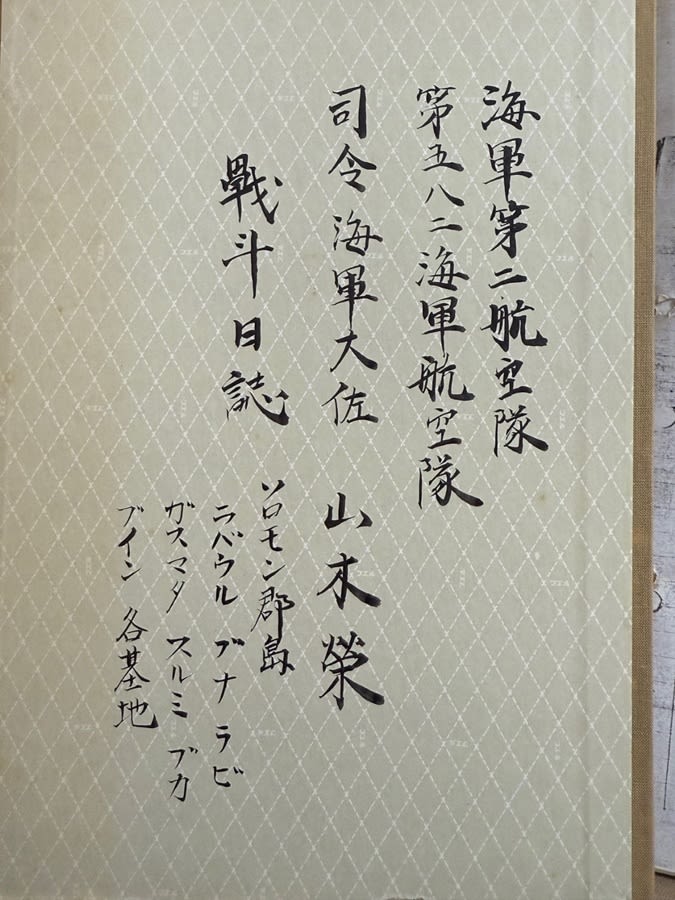 海軍第二航空隊
第五八二海軍航空隊
司令海軍大佐 山本栄
戰斗日誌
ソロモン郡島
ニバウル ブナ ラビ
ガスマタ スルミ ブカ
ブイン 各基地